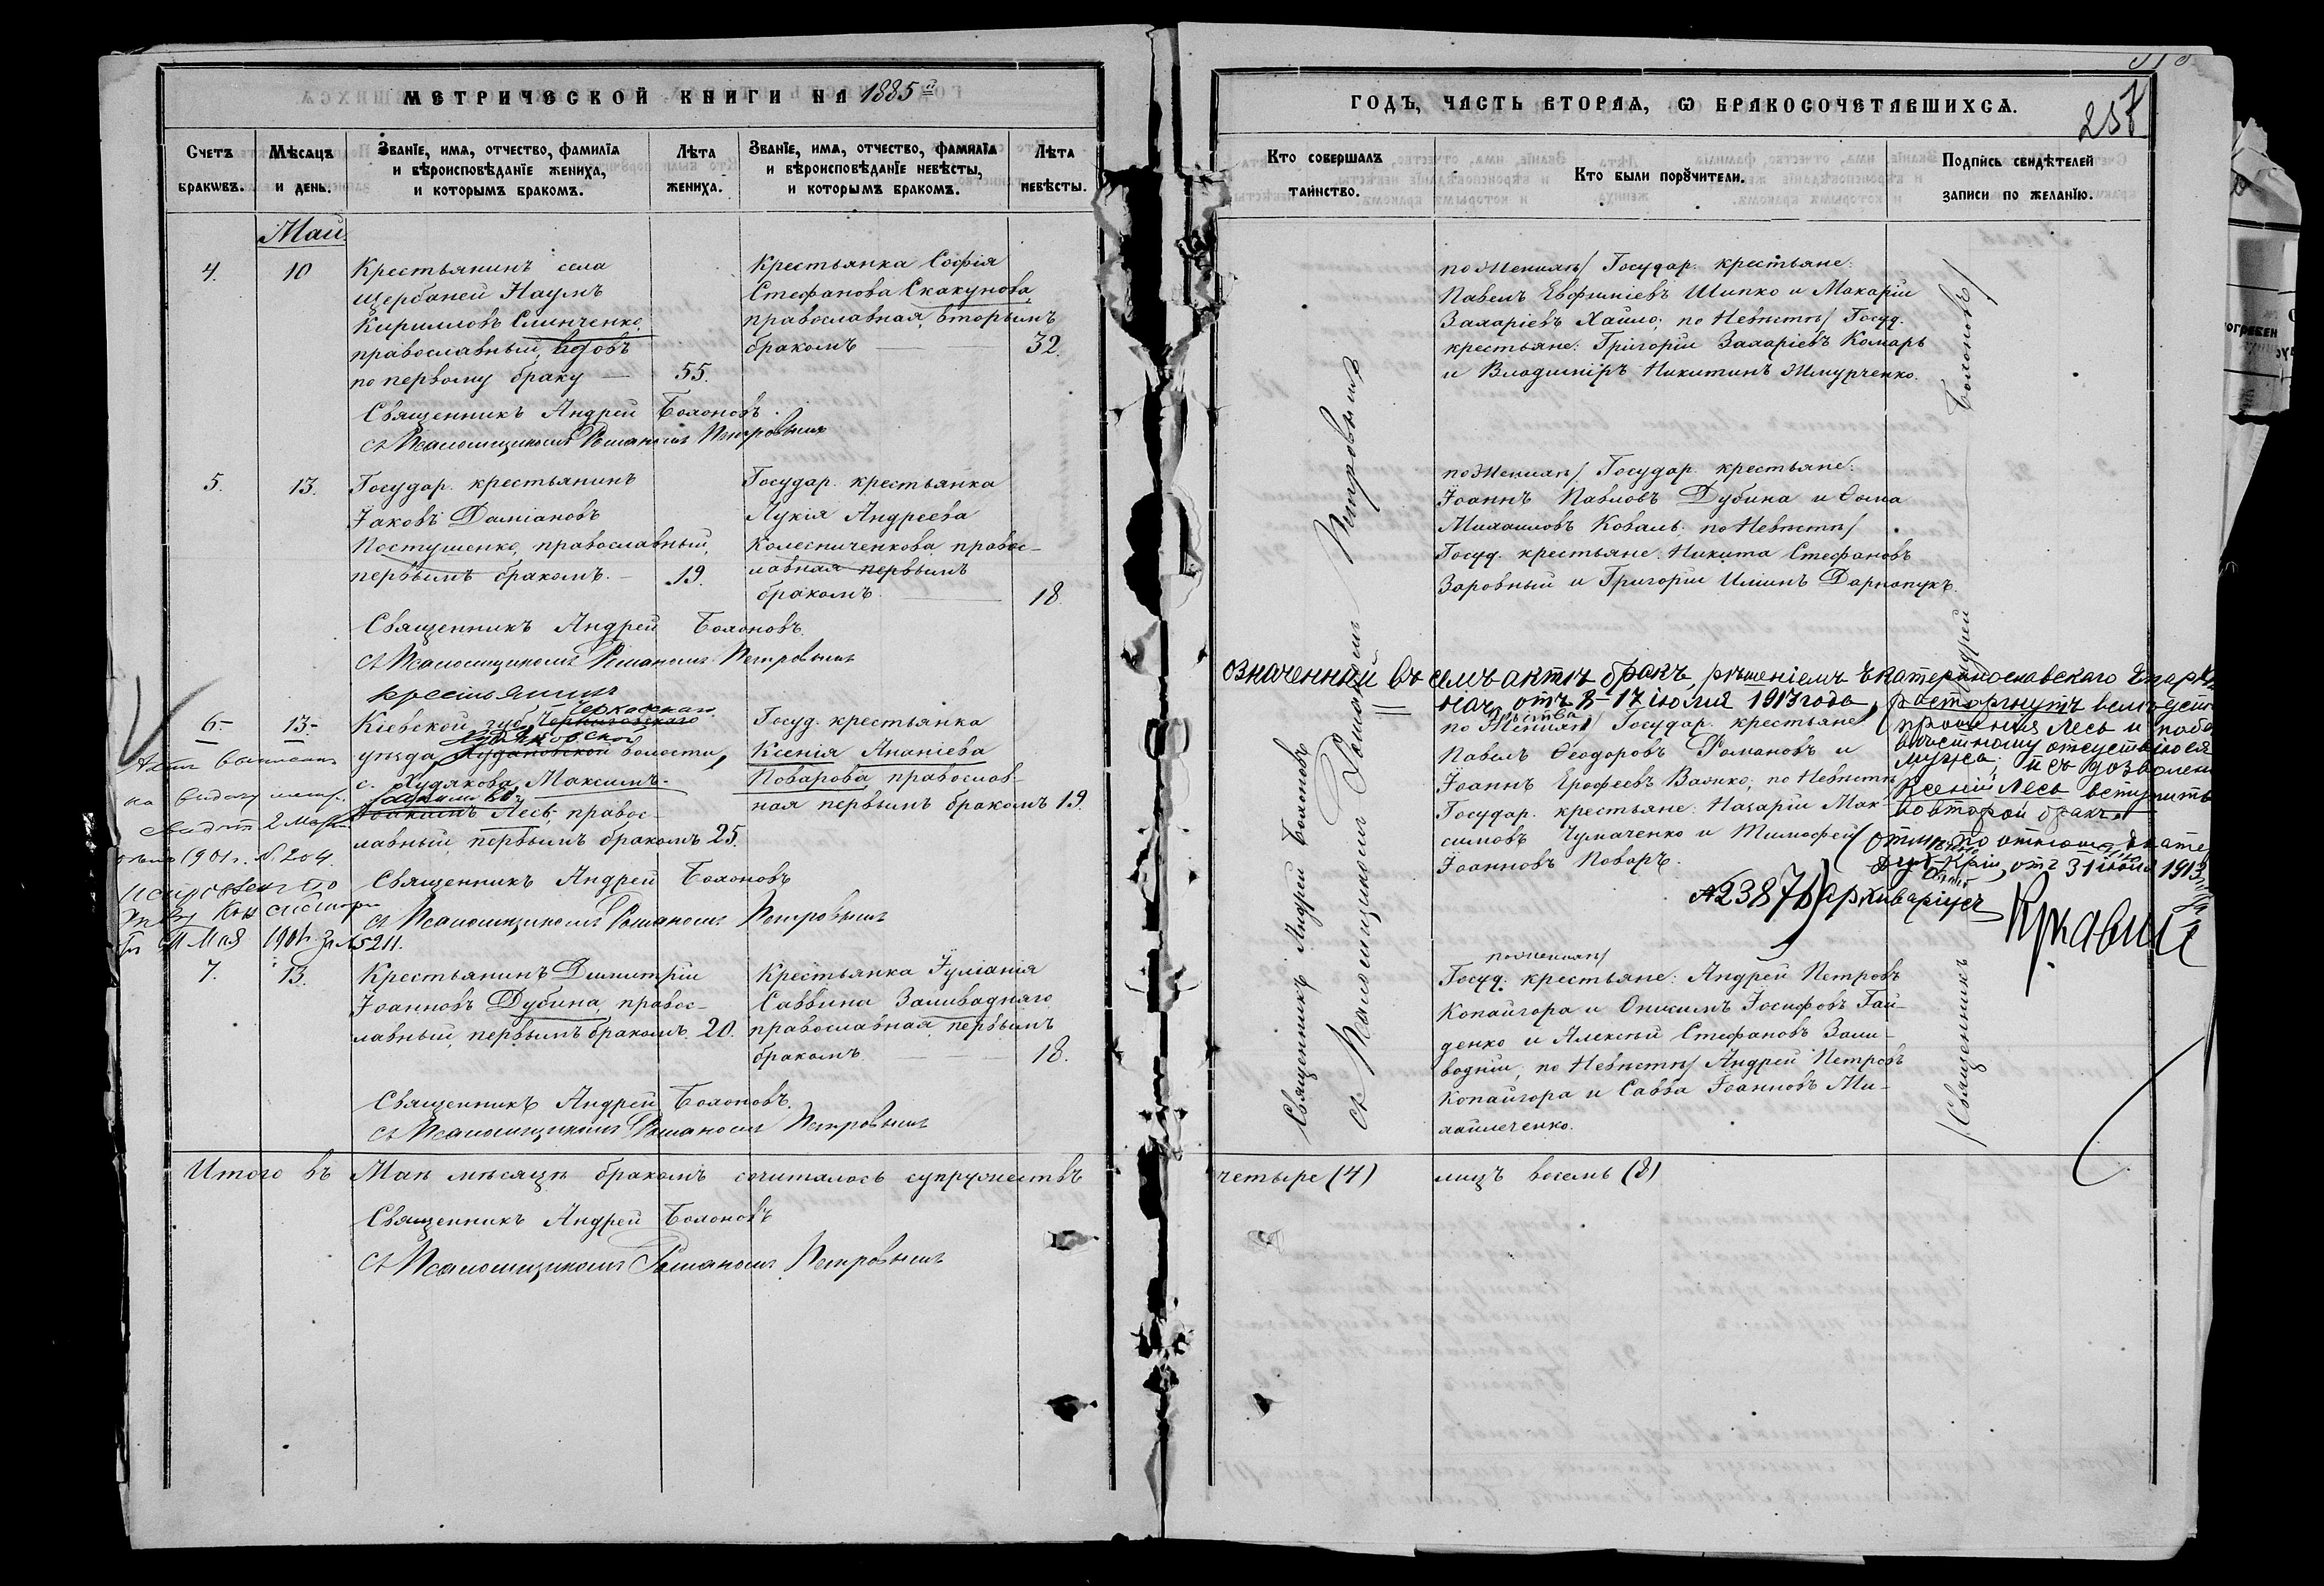 МЕТРИЧЕСКОЙ КНИГИ НА 1885й
Счетъ браковъ.
Мѣсяцъ и день.
Званїе, имя, отчество, фамилїя и вѣроисповѣданїе жениха, и которымъ бракомъ.
Лѣта жениха.
Званїе, имя, отчество, фамилїя и вѣроисповѣданїе невѣсты, и которымъ бракомъ.
Лѣта невѣсты.
Май
4. 10
Крестьянинъ села
Щербаней Наумъ
Кирилловъ Слинченко,
православный, вдовъ
по первому браку — 55.
Крестьянка Софія
Стефанова Скакунова,
православная, вторымъ
бракомъ — 32.
Священникъ Андрей Болоновъ.
съ Псаломщикомъ Романомъ Петровымъ
5. 13.
Государ. крестьянинъ
Іаковъ Даміановъ
Постушенко, православный,
первымъ бракомъ. — 19.
Государ. крестьянка
Лукія Андреева
Колесниченкова, правос-
лавная первымъ
бракомъ. — 18.
Священникъ Андрей Болоновъ.
съ Псаломщикомъ Романомъ Петровымъ
6- 13-
крестьянинъ
Черкасскаго
Кіевской губ. Черниговскаго
Худяковской
уѣзда, волости,
с. Худякова, Максимъ
Іоакимъ Лесь, правос-
лавный, первымъ бракомъ 25.
Госуд. крестьянка
Ксенія Ананіева
Поварова православ-
ная первымъ бракомъ 19.
Актъ выписанъ
на выдачу метр.
свидѣт. 2 Мар
1901 г. № 204.
Исправлено по
Указу Консисторіи
Мая 1901 г. за № 5211.
Священникъ Андрей Болоновъ
съ Псаломщикомъ Романомъ Петровымъ
7. 13.
Крестьянинъ Димитрій
Іоанновъ Дубина, правос-
лавный, первымъ бракомъ. 20.
Крестьянка Іуліанія
Саввина Заливадняго
православная, первымъ
бракомъ — 18.
Священникъ Андрей Болоновъ.
съ Псаломщикомъ Романомъ Петровымъ
Итого въ Маѣ мѣсяцѣ бракомъ сочиталось супружествъ
Священникъ Андрей Болоновъ
съ Псаломщикомъ Романомъ Петровымъ
ГОДЪ, ЧАСТЬ ВТОРАЯ, Ѡ БРАКОСОЧЕТАВШИХСЯ.
257
Кто совершалъ таинство.
Кто были порꙋчители.
Подпись свидѣтелей записи по желанїю.
по Женихѣ/ Государ. крестьяне:
Павелъ Евфиміевъ Шипко и Макарій
Захаріевъ Хайло; по Невѣстѣ/ Госуд.
крестьяне: Григорій Захаріевъ Комарь
и Владиміръ Никитинъ Жмурченко.
по Женихѣ/ Государ. крестьяне:
Іоаннъ Павловъ Дубина и Ѳома
Михаиловъ Коваль; по Невѣстѣ/
Госуд. крестьяне: Никита Стефановъ
Заровный и Григорій Иліинъ Дарнопукъ.
означенный въ семъ актѣ бракъ, рѣшеніемъ Екатеринославскаго Епарх.
Нач. отъ 8-17 іюля 1913 года, расторгнутъ вслѣдст
по Женихѣ/ Государ. крестьяне
Павелъ Ѳеодоровъ Романовъ и
Іоаннъ Ерофеевъ Валико; по Невѣстѣ
Государ. крестьяне: Назарій Мак-
симовъ Чумаченко и Тимофей
Іоанновъ Поваръ.
прошенія Лесь и
безвѣстному отсутствію ея
мужа; и съ дозволен
Ксеніи Лесь вступить
во второй бракъ.
(отм. по отнош. Екате
отъ 31 іюля 1913
№23876) Архиваріусъ
по Женихѣ/
Госуд. крестьяне: Андрей Петровъ
Копайгора и Онисимъ Іосифовъ Гай-
денко и Алексѣй Стефановъ Зали-
водній; по Невѣстѣ/ Андрей Петровъ
Копайгора и Савва Іоанновъ Ми-
хайлеченко.
Священникъ Андрей Болоновъ
съ Псаломщикомъ Романомъ Петровымъ
/Священникъ Андрей Болоновъ/
четыре (4) лицъ восемь (8)